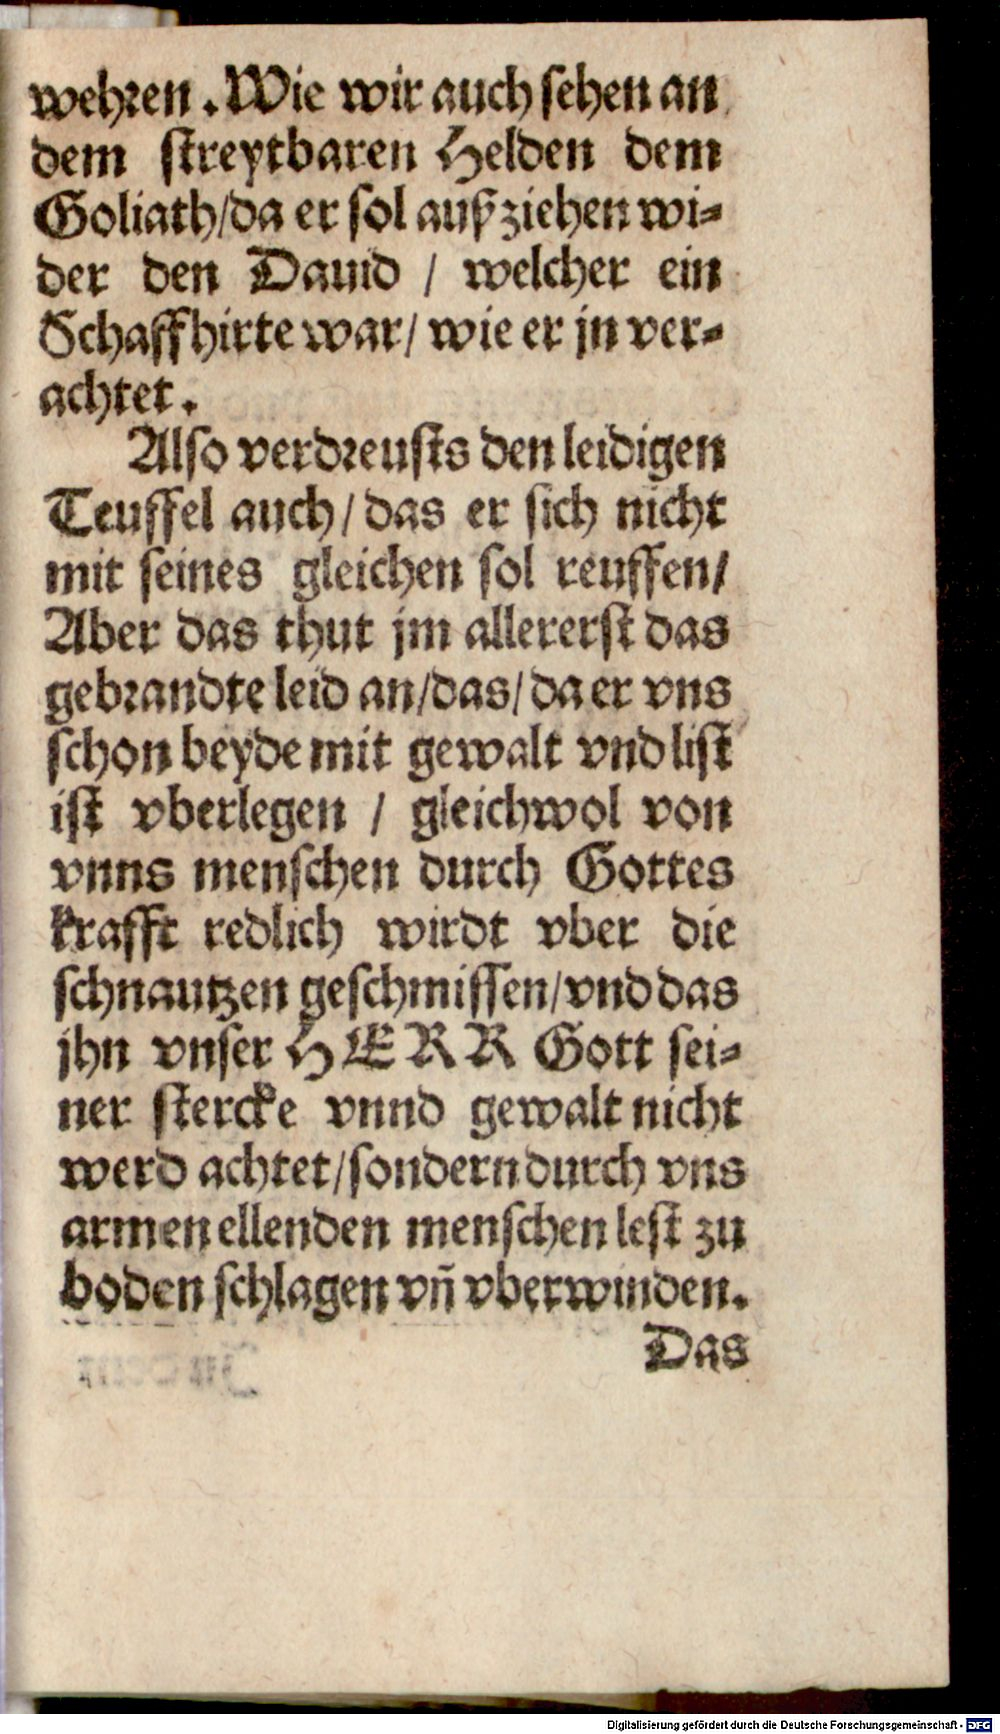 wehren. Wie wir auch sehen an
dem streytbaren Helden dem
Goliath/da er sol außziehen wi⸗
der den Dauid / welcher ein
Schaffhirte war/ wie er jn ver⸗
achtet.
Also verdreusts den leidigen
Teuffel auch/ das er sich nicht
mit seines gleichen sol reuffen/
Aber das thut jm allererst das
gebrandte leid an/das/ da er vns
schon beyde mit gewalt vnd list
ist vberlegen / gleichwol von
vnns menschen durch Gottes
krafft redlich wirdt vber die
schnautzen geschmissen/vnd das
jhn vnser HERR Gott sei⸗
ner stercke vnnd gewalt nicht
werd achtet/sondern durch vns
armen ellenden menschen lest zu
boden schlagen vñ vberwinden.
Das
Digitalisierung gefördert durch die Deutsche Forschungsgemeinschaft - DFG